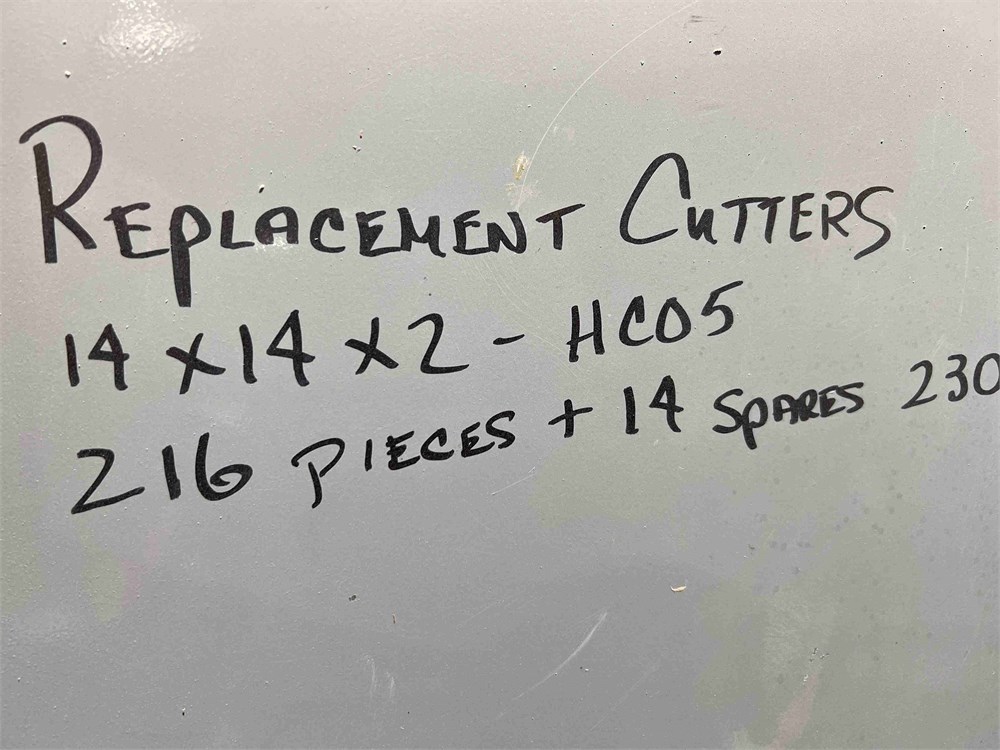 REPLACEMENT CUTTERS
14 x 14 x 2 - HC05
216 PIECES + 14 SPARES 230